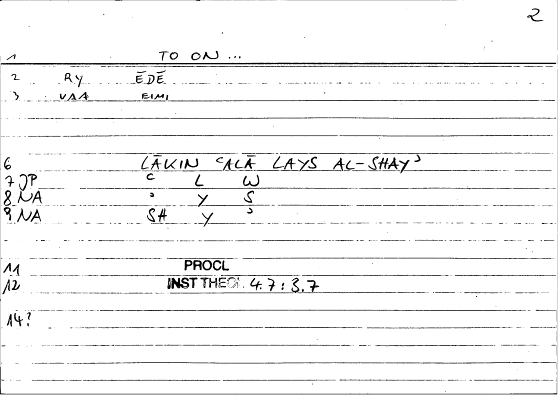 2
1 TO ON ...
2 RY ĒDĒ
3 VAA EIMI
6 LĀKIN ʿALĀ LAYS AL-SHAYʾ
7 JP ʿ L W
8 NA ʾ Y S
9 NA SH Y ʾ
11 PROCL
12 INST THEOL. 4.7 : 3.7
14?